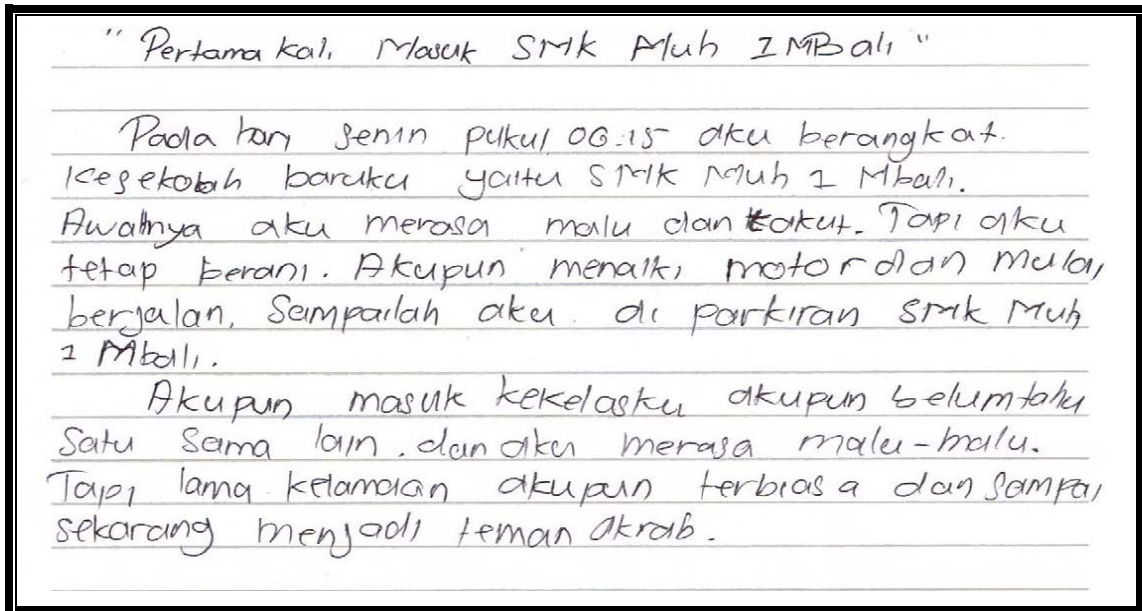 " Pertama kali Masuk SMK Muh 1 MBali "
Pada hari Senin pukul 06.15 aku berangkat.
Kesekolah baruku yaitu SMK Muh 1 Mbali.
Awalnya aku merasa malu dan takut. Tapi aku
tetap berani. Akupun menaiki motor dan mulai
berjalan, Sampailah aku di parkiran SMK Muh
1 Mbali.
Akupun masuk kekelasku akupun belumtahu
Satu Sama lain. dan aku merasa malu-malu.
Tapi lama kelamaan akupun terbiasa dan Sampai
sekarang menjadi teman akrab.